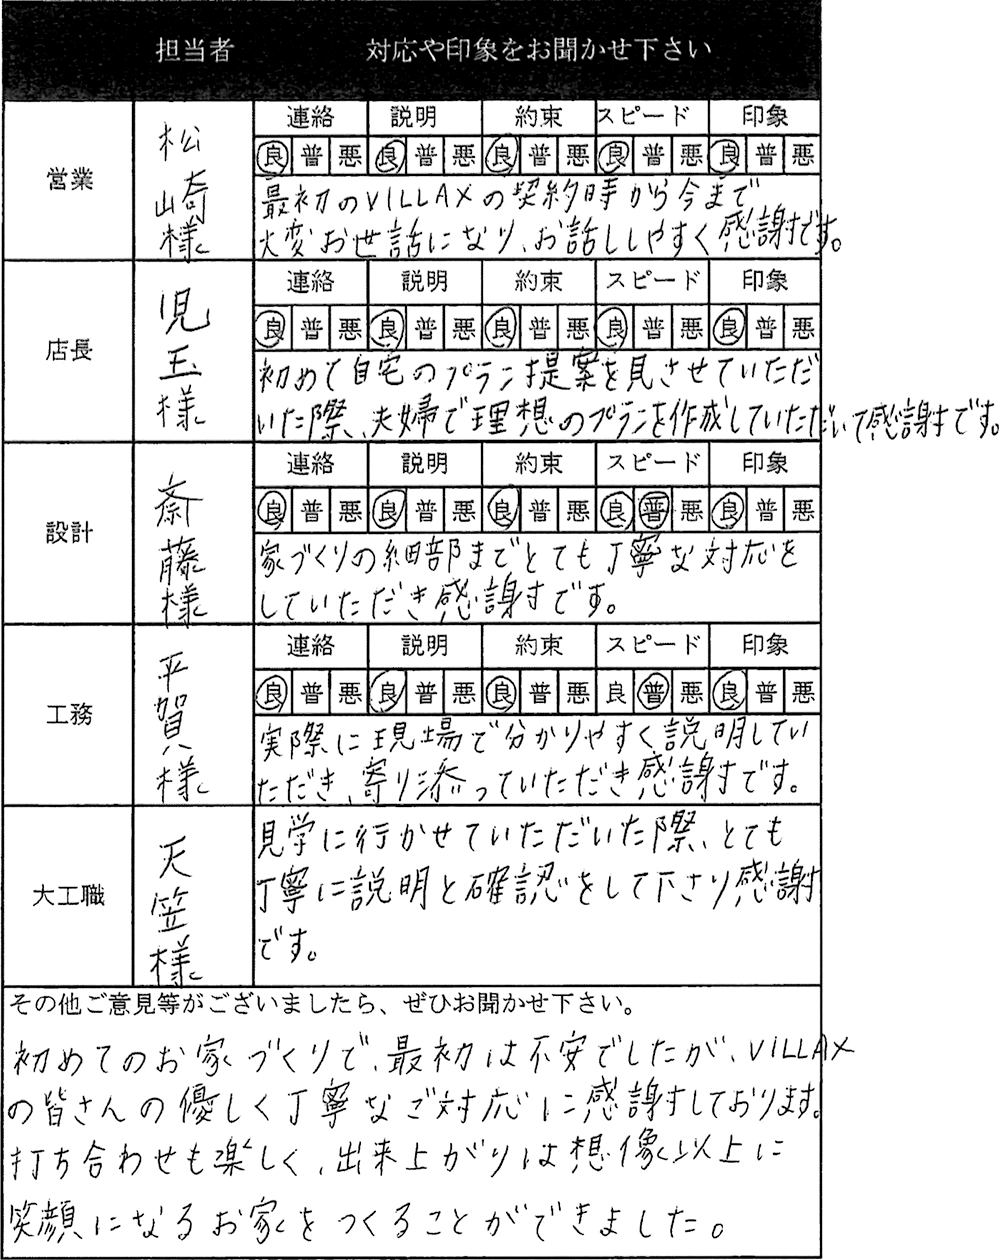 担当者 対応や印象をお聞かせ下さい
営業
松崎様
連絡 説明 約束 スピード 印象
良 普 悪 良 普 悪 良 普 悪 良 普 悪 良 普 悪
最初のVILLAXの契約時から今まで
大変お世話になり、お話ししやすく感謝です。
店長
児玉様
連絡 説明 約束 スピード 印象
良 普 悪 良 普 悪 良 普 悪 良 普 悪 良 普 悪
初めて自宅のプラン提案を見させていただ
いた際、夫婦で理想のプランを作成していただいて感謝です。
設計
斎藤様
連絡 説明 約束 スピード 印象
良 普 悪 良 普 悪 良 普 悪 良 普 悪 良 普 悪
家づくりの細部までとても丁寧な対応を
していただき感謝です。
工務
平賀様
連絡 説明 約束 スピード 印象
良 普 悪 良 普 悪 良 普 悪 良 普 悪 良 普 悪
実際に現場で分かりやすく説明してい
ただき、寄り添っていただき感謝です。
大工職
天笠様
見学に行かせていただいた際、とても
丁寧に説明と確認をして下さり感謝
です。
その他ご意見等がございましたら、ぜひお聞かせ下さい。
初めてのお家づくりで、最初は不安でしたが、VILLAX
の皆さんの優しく丁寧なご対応に感謝しております。
打ち合わせも楽しく、出来上がりは想像以上に
笑顔になるお家をつくることができました。